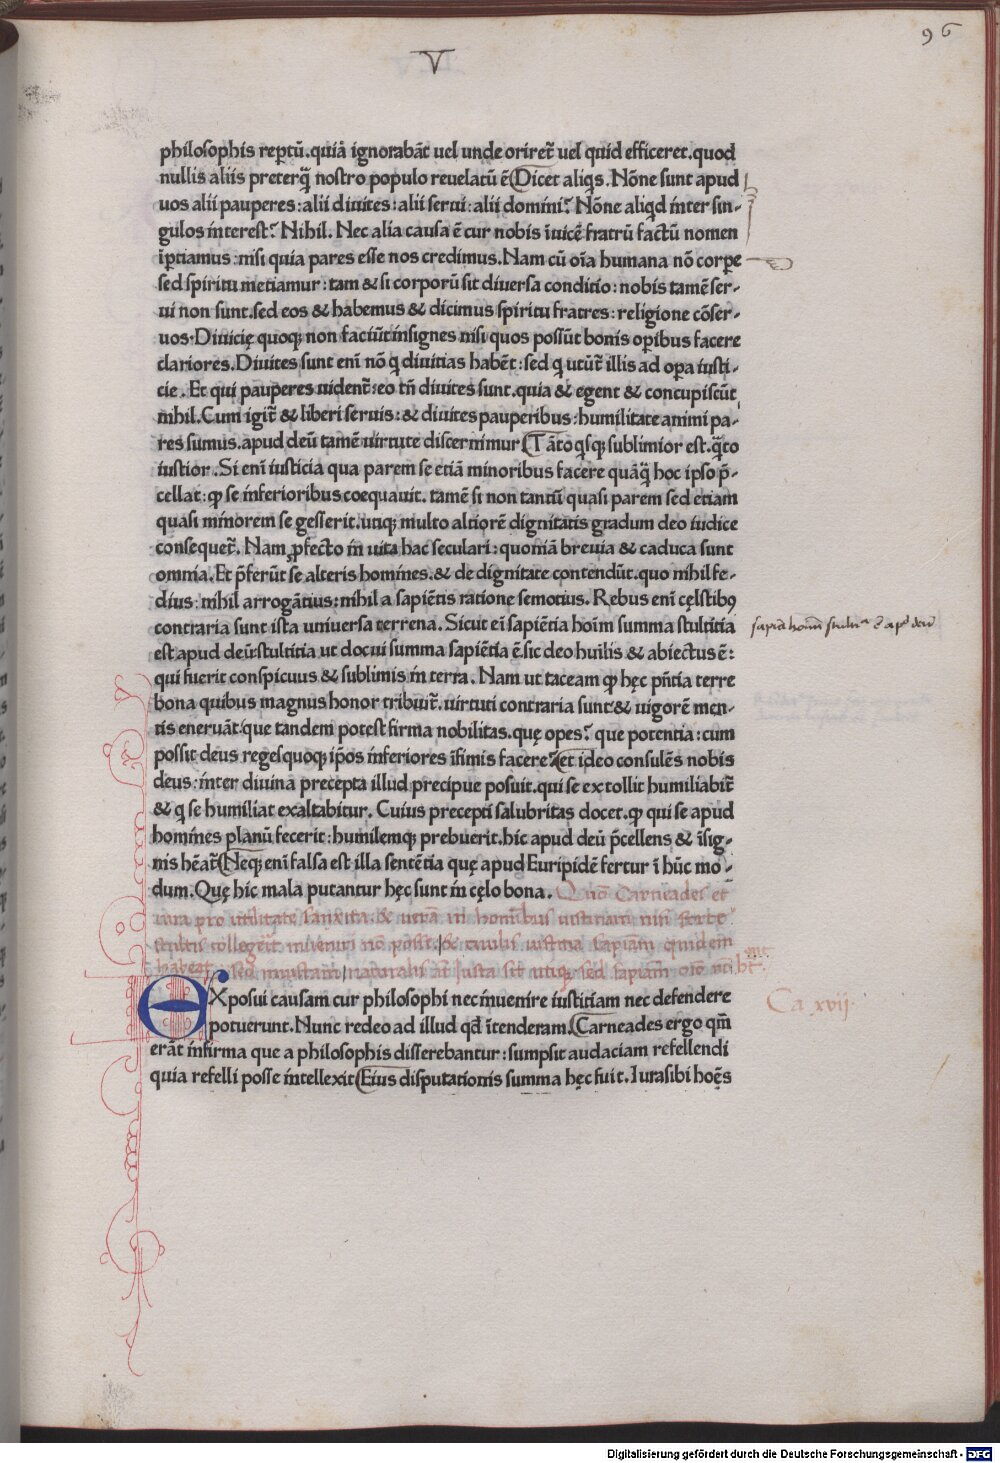 96
V
philosophis reptũ.quiã ignorabãt uel unde oriret̃ uel quid efficeret.quod
nullis aliis preterq̃ nostro populo reuelatũ ẽ Dicet aliq̃s. Nõne sunt apud
uos alii pauperes:alii diuites:alii serui:alii domini? Nõne aliqd inter sin-
gulos interest? Nihil. Nec alia causa ẽ cur nobis ĩuicẽ fratrũ factũ nomen
ĩptiamus:nisi quia pares esse nos credimus.Nam cũ oĩa humana nõ corpe
sed spiritu metiamur:tam & si corporũ sit diuersa conditio:nobis tamẽ ser-
ui non sunt.sed eos & habemus & dicimus spiritu fratres:religione cõser-
uos.Diuicię quoq; non faciũt insignes nisi quos possũt bonis opibus facere
clariores.Diuites sunt enĩ nõ q̃ diuitias habẽt:sed q̃ utũt̃ illis ad opa iusti-
cie. Et qui pauperes uident̃:eo tñ diuites sunt.quia & egent & concupiscũt
nihil.Cum igit̃ & liberi seruis:& diuites pauperibus:humilitate animi pa-
res sumus.apud deũ tamẽ uirtute discernimur Tãto q̃sq; sublimior est.q̃to
iustior.Si enĩ iusticia qua parem se etiã minoribus facere quãq̃ hoc ipso p̃-
cellat:ꝙ se inferioribus coequauit. tamẽ si non tantũ quasi parem sed etiam
quasi minorem se gesserit.utiq; multo altiorẽ dignitatis gradum deo iudice
consequet̃. Nam ꝓfecto in uita hac seculari:quoniã breuia & caduca sunt
omnia.Et p̃ferũt se alteris homines.& de dignitate contendũt.quo nihil fe-
dius:nihil arrogãtius:nihil a sapiẽtis ratione semotius. Rebus enĩ cęlstibꝰ
contraria sunt ista uniuersa terrena. Sicut eĩ sapiẽtia hoĩm summa stultitia
est apud deũ:stultitia ut docui summa sapiẽtia ẽ.sic deo huilis & abiectus ẽ:
qui fuerit conspicuus & sublimis in terra. Nam ut taceam ꝙ hęc p̃ntia terre
bona quibus magnus honor tribuit̃. uirtuti contraria sunt & uigorẽ men-
tis eneruãt:que tandem potest firma nobilitas.quę opes? que potentia:cum
possit deus reges quoq; ip̃os inferiores ĩfimis facere? et ideo consulẽs nobis
deus:inter diuina precepta illud precipue posuit.qui se extollit humiliabit̃
& q̃ se humiliat exaltabitur. Cuius precepti salubritas docet.ꝙ qui se apud
homines planũ fecerit:humilemq; prebuerit.hic apud deũ p̃cellens & ĩsig-
nis hẽat̃ Neq; enĩ falsa est illa sentẽtia quę apud Euripidẽ fertur ĩ hũc mo-
dum.Quę hic mala putantur hęc sunt in cęlo bona. Quõ Carneades et
iura pro utilitate sanxita & uerã in hominibus iustitiam nisi forte
stultis collegerit inueniri nõ posse. & ciuilis iustitia sapiam quidem
habeat sed iniustam naturalis aũt iusta sit utiq; sed sapiam oĩo nõ hẽt.
Ca xvii
EXposui causam cur philosophi nec inuenire iustitiam nec defendere
potuerunt.Nunc redeo ad illud qd̃ ĩtenderam. Carneades ergo qm̃
erãt infirma que a philosophis disserebantur:sumpsit audaciam refellendi
quia refelli posse intellexit Eius disputationis summa hęc fuit.Iura sibi hoẽs
Digitalisierung gefördert durch die Deutsche Forschungsgemeinschaft - DFG